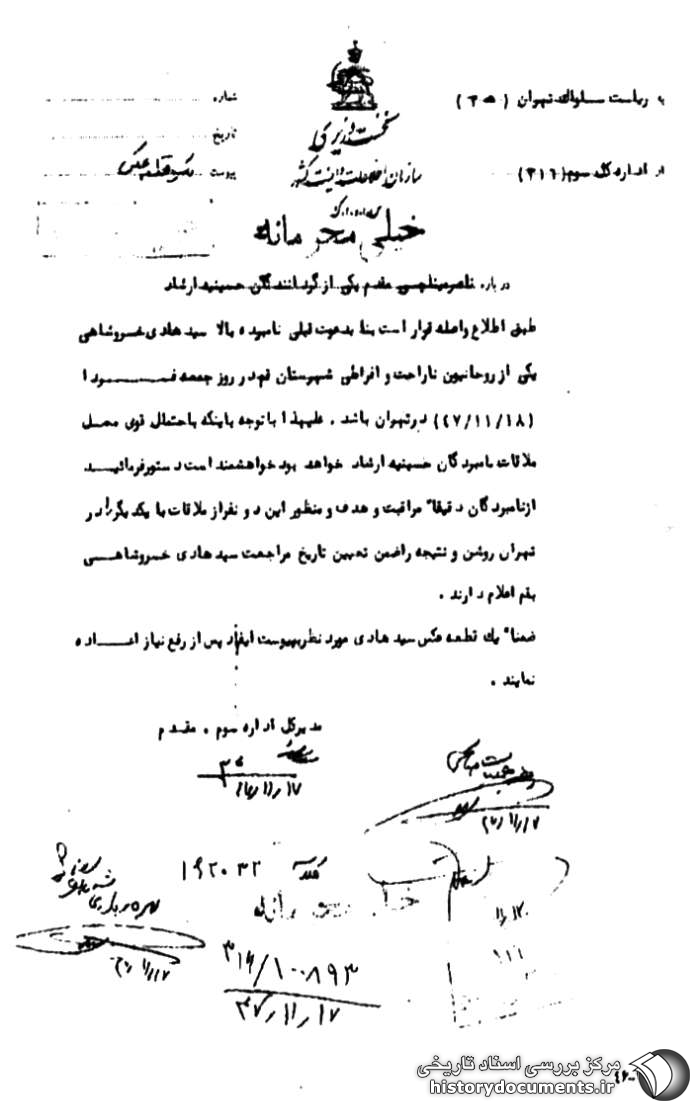 به ریاست ساواک تهران (۳۵۰)
از اداره کل سوم (۳۱۶)
نخست وزیری
سازمان اطلاعات و امنیت کشور
س.ا.و.ا.ک
شماره
تاریخ
پیوست یک قطعه عکس
خیلی محرمانه
درباره ناصر میناچی مقدم یکی از گردانندگان حسینیه ارشاد
طبق اطلاع واصله قرار است بنا بدعوت قبلی نامبوده بالا سید هادی خسروشاهی
یکی از روحانیون ناراحت و افراطی شهرستان قم در روز جمعه فردا
(۴۷/۱۱/۱۸) در تهران باشد . علیهذا با توجه باینکه باحتمال قوی محل
ملاقات نامبردگان حسینیه ارشاد خواهد بود خواهشمند است دستور فرمائید
از نامبردگان دقیقا" مراقبت و هدف و منظور این دو نفر از ملاقات با یکدیگر را در
تهران روشن و نتیجه را ضمن تعیین تاریخ مراجعت سید هادی خسروشاهی
بقم اعلام دارند .
ضمنا" یک قطعه عکس سید هادی مورد نظر بپیوست ایفاد پس از رفع نیاز اعاده
نمایند .
مدیرکل اداره سوم . مقدم
۴۷/۱۱/۱۷
۴۷/۱۱/۱۷
۱۹۲۰۳۲
خیلی محرمانه
۴۷/۱۱/۱۷
۳۱۶/۱۰۰۸۹۳
۴۷/۱۱/۱۷
مرکز بررسی اسناد تاریخی
historydocuments.ir